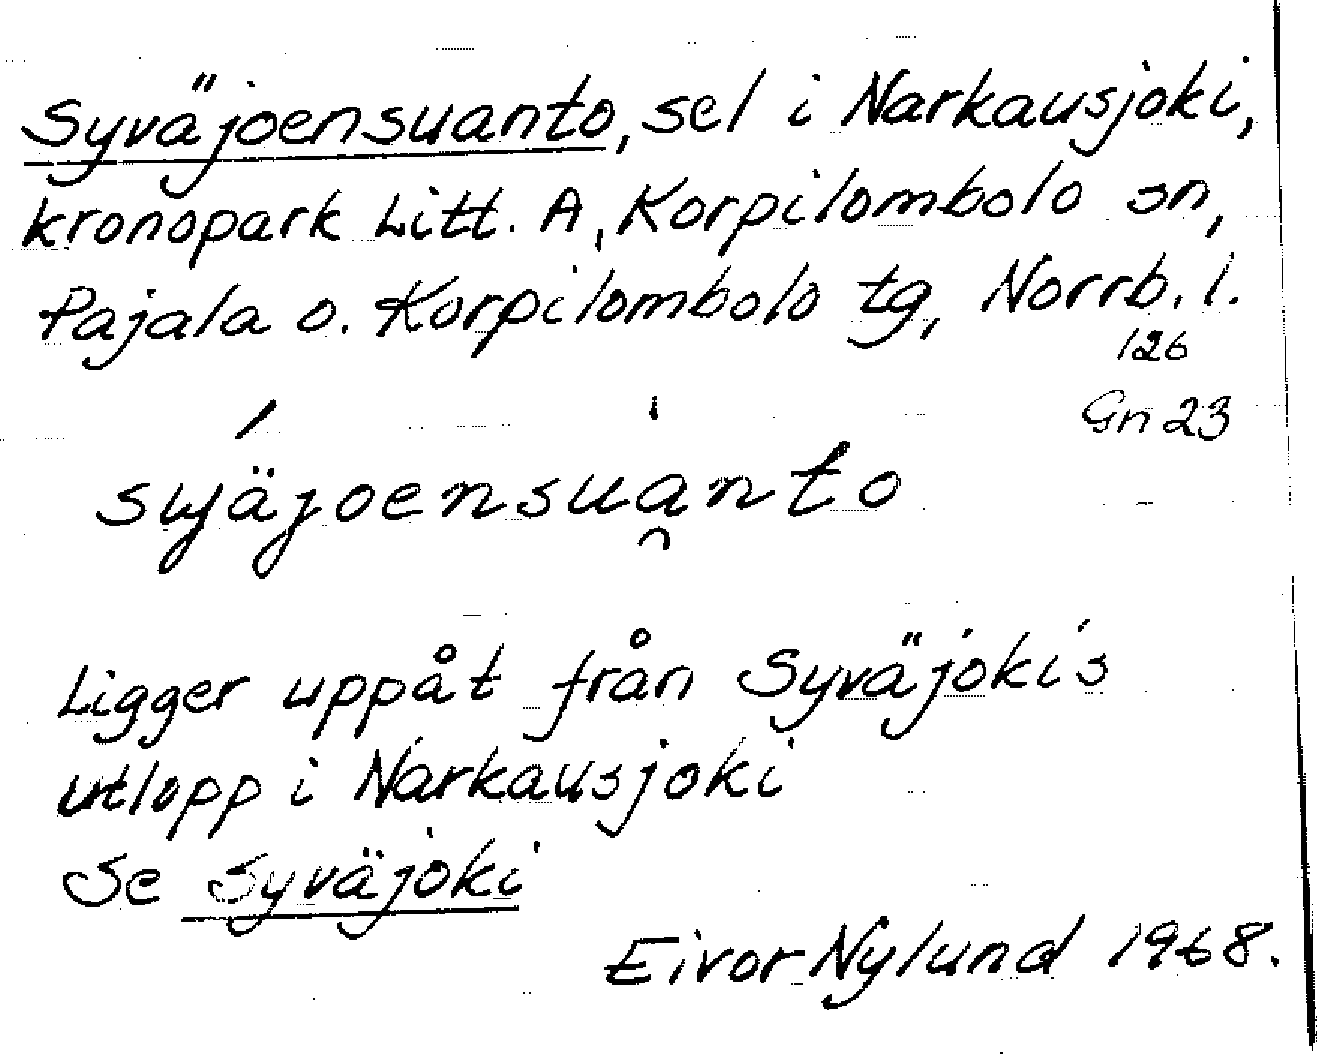 Syväjoensuanto, sel i Narkausjoki,
kronopark Litt. A, Korpilombolo sn,
Pajala o. Korpilombolo tg, Norrb. l.
126
Gn 23
syväjoensuanto
Ligger uppåt från Syväjokis
utlopp i Narkausjoki
Se Syväjoki
Eivor Nylund 1968.